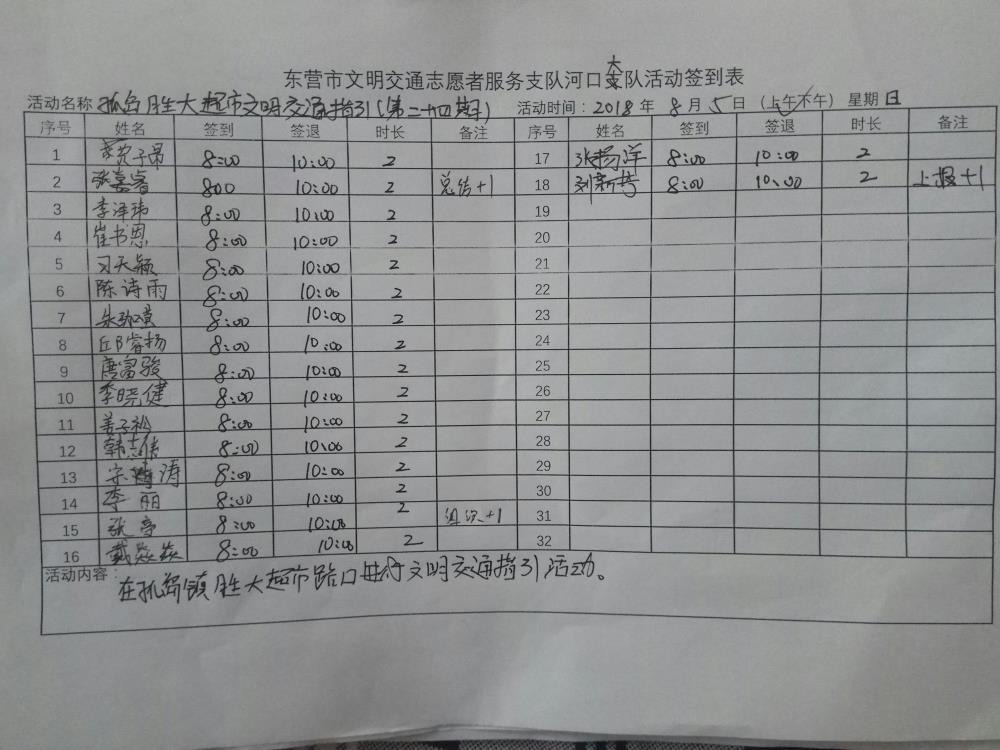 东营市文明交通志愿者服务支队河口大队活动签到表
活动名称 孤岛胜大超市文明交通指引(第二十四期) 活动时间：2018年 8月 5日 (上午下午) 星期日
序号 姓名 签到 签退 时长 备注 序号 姓名 签到 签退 时长 备注
1 8:00 10:00 2 17 张扬洋 8:00 10:00 2
2 张嘉睿 800 10:00 2 总结+1 18 8:00 10:00 2 上报+1
3 李泽玮 8:00 10:00 2 19
4 崔书恩 8:00 10:00 2 20
5 刁天颖 8:00 10:00 2 21
6 陈诗雨 8:00 10:00 2 22
7 8:00 10:00 2 23
8 邱睿扬 8:00 10:00 2 24
9 唐富骏 8:00 10:00 2 25
10 李晓健 8:00 10:00 2 26
11 姜子松 8:00 10:00 2 27
12 韩志伟 8:00 10:00 2 28
13 8:00 10:00 2 29
14 李丽 8:00 10:00 2 30
15 张亭 8:00 10:00 2 组织+1 31
16 戴焱焱 8:00 10:00 2 32
活动内容：
在孤岛镇胜大超市路口进行文明交通指引活动。